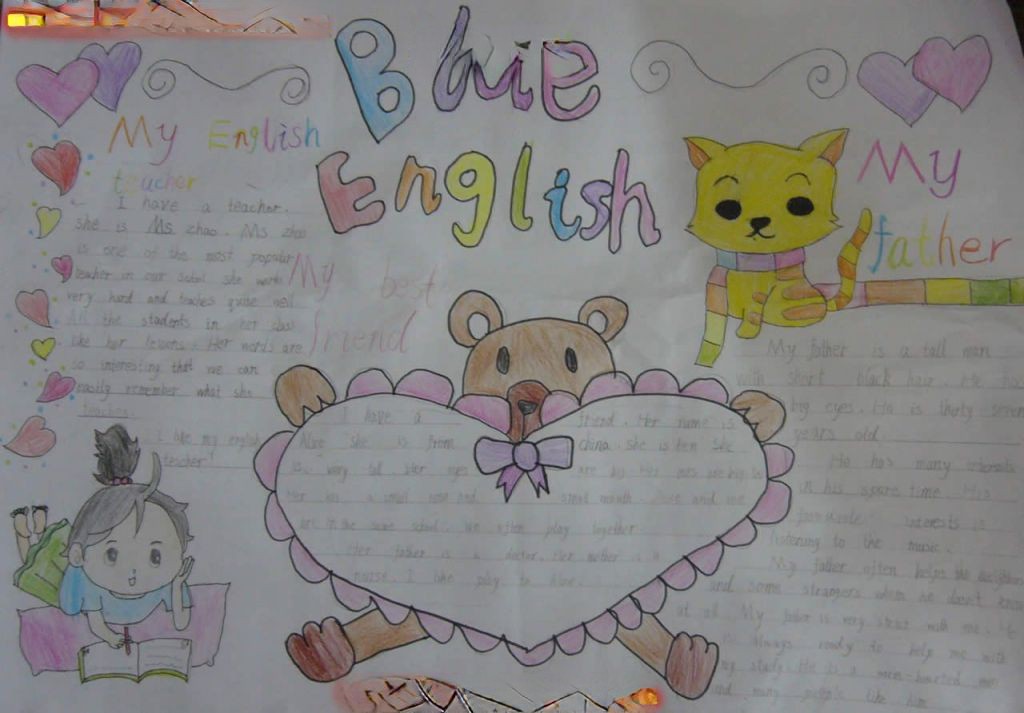 Blue
English
My English
teacher
I have a teacher.
she is Ms zhao. Ms zhao
is one of the most popular
teacher in our school she works
very hard and teaches quite well.
All the students in her class
like her lessons. Her words are
so interesting that we can
easily remember what she
teaches.
I like my english
teacher
My best
friend
I have a friend. Her name is
Alice she is from china. she is ten she
is very tall Her eyes are big Her
Her has a small nose and small mouth. Alice and me
are in the same school. we often play together
Her father is a doctor. Her mother is a
nurse. I like play to Alice.
My
father
My father is a tall man
with short black hair. He has
big eyes. He is thirty seven
years old.
He has many interests
in his spare time. His
favourite interests is
listening to the music.
My father often helps the neighbors
and some strangers whom he doesn't know
at all. My father is very strict with me. He
is always ready to help me with
my study. He is a warm-hearted man
and many people like him